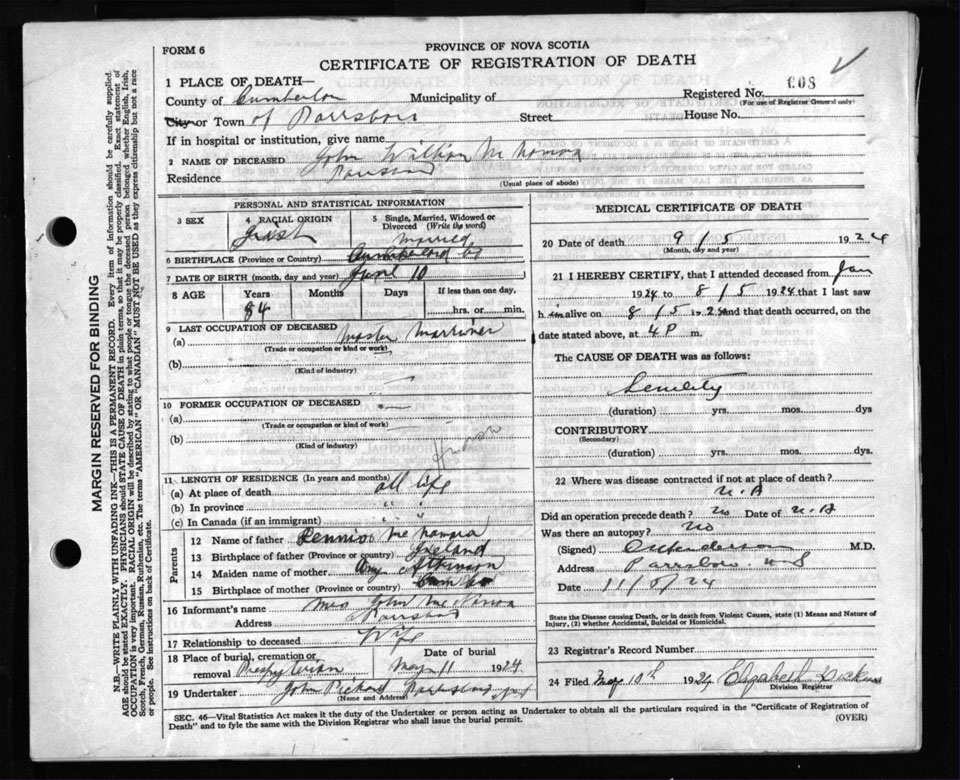 FORM 6
PROVINCE OF NOVA SCOTIA
CERTIFICATE OF REGISTRATION OF DEATH
1 PLACE OF DEATH—
Registered No. 608
(For use of Registrar General only)
County of Cumberlan Municipality of
City or Town of Parrsboro Street House No.
If in hospital or institution, give name
2 NAME OF DECEASED John William
Residence
(Usual place of abode)
PERSONAL AND STATISTICAL INFORMATION
3 SEX
4 RACIAL ORIGIN Irish
5 Single, Married, Widowed or Divorced (Write the word) Married
6 BIRTHPLACE (Province or Country) Cumberland Co
7 DATE OF BIRTH (month, day and year) April 10
8 AGE Years Months Days If less than one day,
84 hrs. or min.
9 LAST OCCUPATION OF DECEASED
(a) Master Marriner
(Trade or occupation or kind or work)
(b)
(Kind of industry)
10 FORMER OCCUPATION OF DECEASED
(a)
(Trade or occupation or kind of work)
(b)
(Kind of industry)
11 LENGTH OF RESIDENCE (In years and months)
(a) At place of death All life
(b) In province " "
(c) In Canada (if an immigrant) " "
Parents
12 Name of father Dennis McNamara
13 Birthplace of father (Province or country) Ireland
14 Maiden name of mother Amy Atkinson
15 Birthplace of mother (Province or country) Cum Co
16 Informant's name Mrs John
Address
17 Relationship to deceased Wife
18 Place of burial, cremation or removal Date of burial
Presbyterian May 11 1924
19 Undertaker John Pickard Parrsboro
(Name and Address)
MEDICAL CERTIFICATE OF DEATH
20 Date of death 9/5 1924
(Month, day and year)
21 I HEREBY CERTIFY, that I attended deceased from Jan
1924 to 8/5 1924 that I last saw
him alive on 8/5 1924 and that death occurred, on the
date stated above, at 4 P m.
The CAUSE OF DEATH was as follows:
Senility
(duration) yrs. mos. dys
CONTRIBUTORY
(Secondary)
(duration) yrs. mos. dys.
22 Where was disease contracted if not at place of death?
N.A
Did an operation precede death? No Date of N.A
Was there an autopsy? No
(Signed) M.D.
Address Parrsboro N S
Date 11/5/24
State the Disease causing Death, or in death from Violent Causes, state (1) Means and Nature of Injury, (2) whether Accidental, Suicidal or Homicidal.
23 Registrar's Record Number
24 Filed May 10th 1924 Elizabeth
Division Registrar
SEC. 46—Vital Statistics Act makes it the duty of the Undertaker or person acting as Undertaker to obtain all the particulars required in the "Certificate of Registration of
Death" and to fyle the same with the Division Registrar who shall issue the burial permit. (OVER)
MARGIN RESERVED FOR BINDING
N.B.—WRITE PLAINLY WITH UNFADING INK—THIS IS A PERMANENT RECORD. Every item of information should be carefully supplied.
AGE should be stated EXACTLY. PHYSICIANS should STATE CAUSE OF DEATH in plain terms, so that it may be properly classified. Exact statement of
OCCUPATION is very important. RACIAL ORIGIN will be described by stating to what people or tongue the deceased person belonged whether English, Irish,
Scotch, French, German, Russian, Ruthenian, etc. The terms "AMERICAN" OR "CANADIAN" MUST NOT BE USED as they express citizenship but not a race
or people. See instructions on back of Certificate.